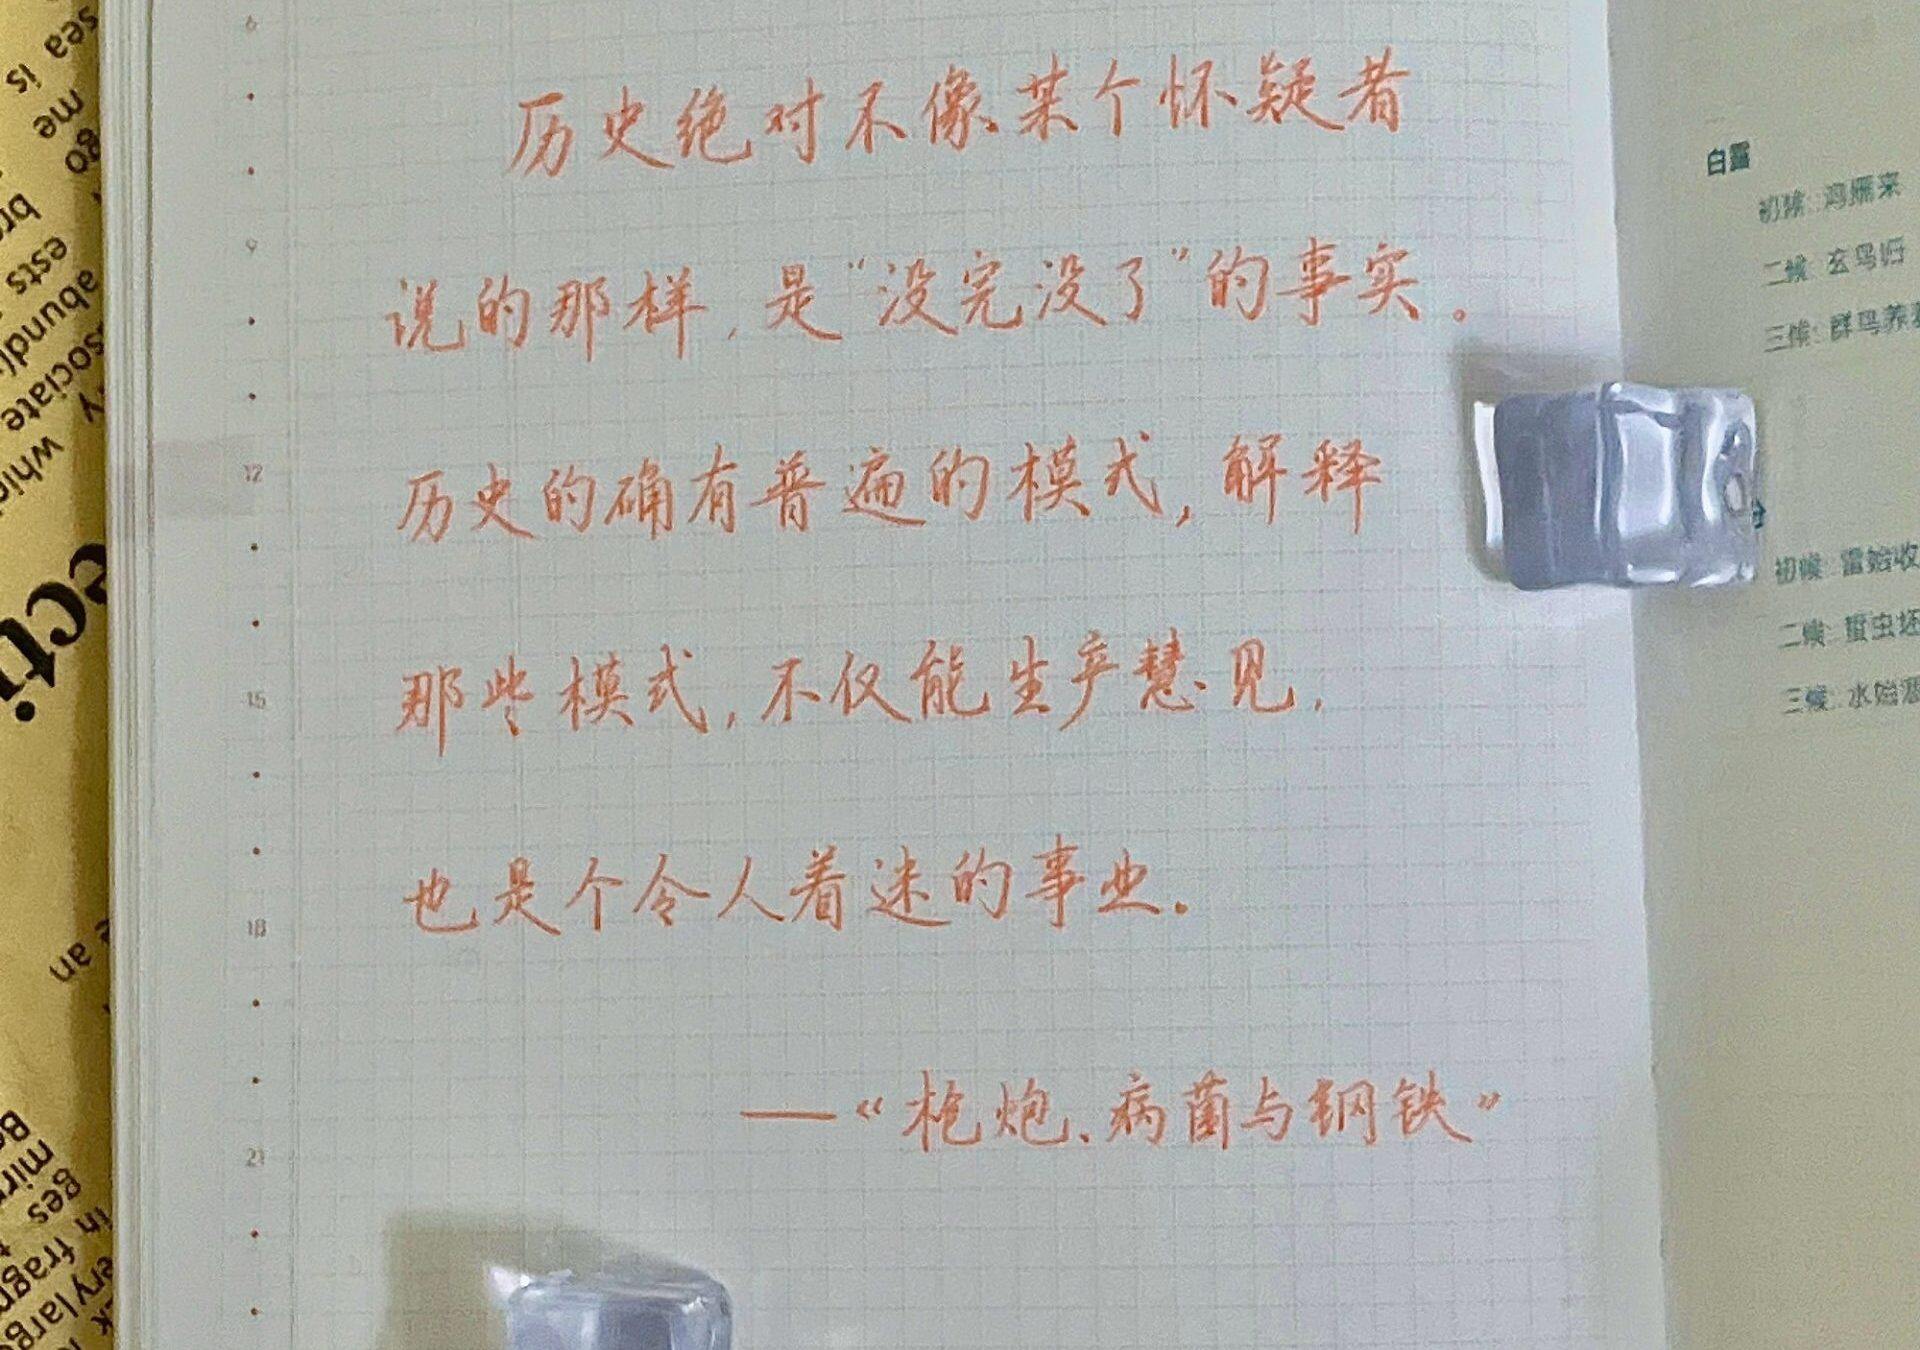 历史绝对不像某个怀疑者
说的那样，是“没完没了”的事实。
历史的确有普遍的模式，解释
那些模式，不仅能生产慧见，
也是个令人着迷的事业。
—《枪炮、病菌与钢铁》
6
9
12
15
18
21
白露
初候：鸿雁来
二候：玄鸟归
三候：群鸟养
初候：雷始收
二候：蛰虫坯
三候：水始涸
sea is
me
ago
ests
abund
sociate
which
ecti
an
mir
ges
in fragm
ery large